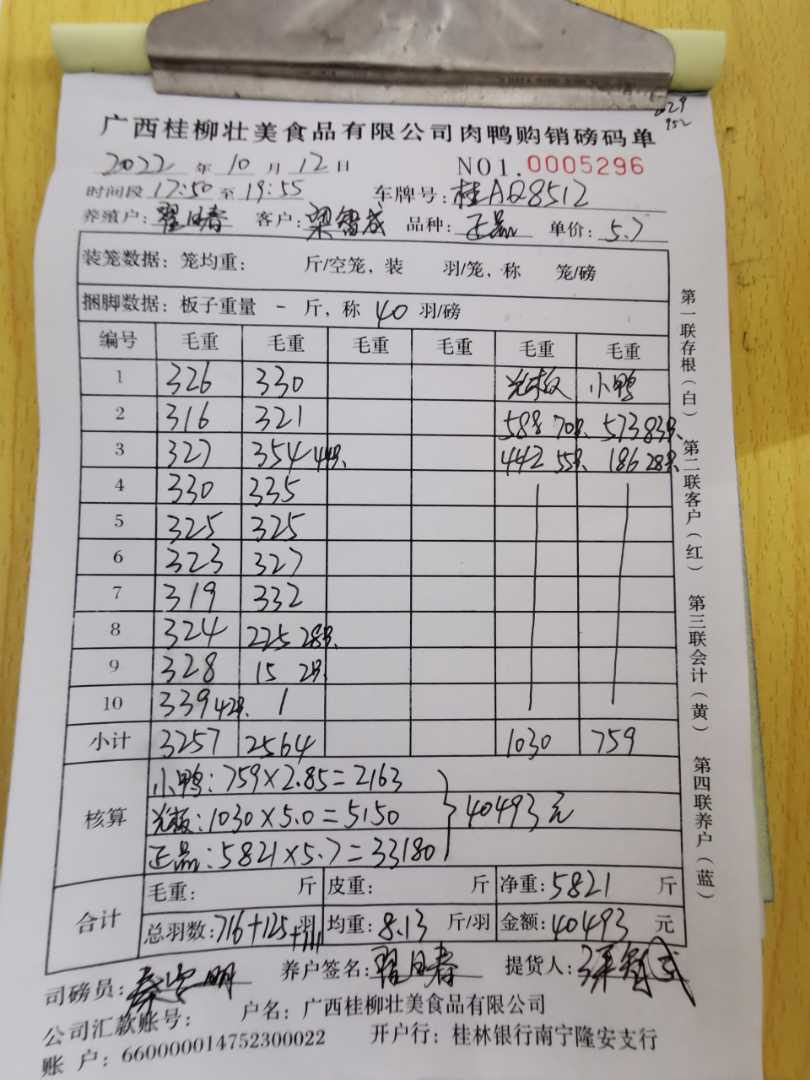 广西桂柳壮美食品有限公司肉鸭购销磅码单
2022 年 10 月 12 日 NO1.0005296
时间段 17:50 至 19:55 车牌号: 桂AQ8512
养殖户: 翟日春 客户: 梁智成 品种: 正品 单价: 5.7
装笼数据: 笼均重: 斤/空笼, 装 羽/笼, 称 笼/磅
捆脚数据: 板子重量 - 斤, 称 40 羽/磅
编号 毛重 毛重 毛重 毛重 毛重 毛重
1 326 330 光板 小鸭
2 316 321 588 70只 573 83只
3 327 354 44只 442 55只 186 28只
4 330 335
5 325 325
6 323 327
7 319 332
8 324 225 28只
9 328 15 2只
10 339 42只
小计 3257 2564 1030 759
核算
小鸭: 759×2.85=2163
光板: 1030×5.0=5150
正品: 5821×5.7=33180
40493元
合计
毛重: 斤 皮重: 斤 净重: 5821 斤
总羽数: 716+125+111 羽 均重: 8.13 斤/羽 金额: 40493 元
司磅员: 养户签名: 翟日春 提货人:
公司汇款账号: 户名: 广西桂柳壮美食品有限公司
账 户: 660000014752300022 开户行: 桂林银行南宁隆安支行
第一联存根(白) 第二联客户(红) 第三联会计(黄) 第四联养户(蓝)
952